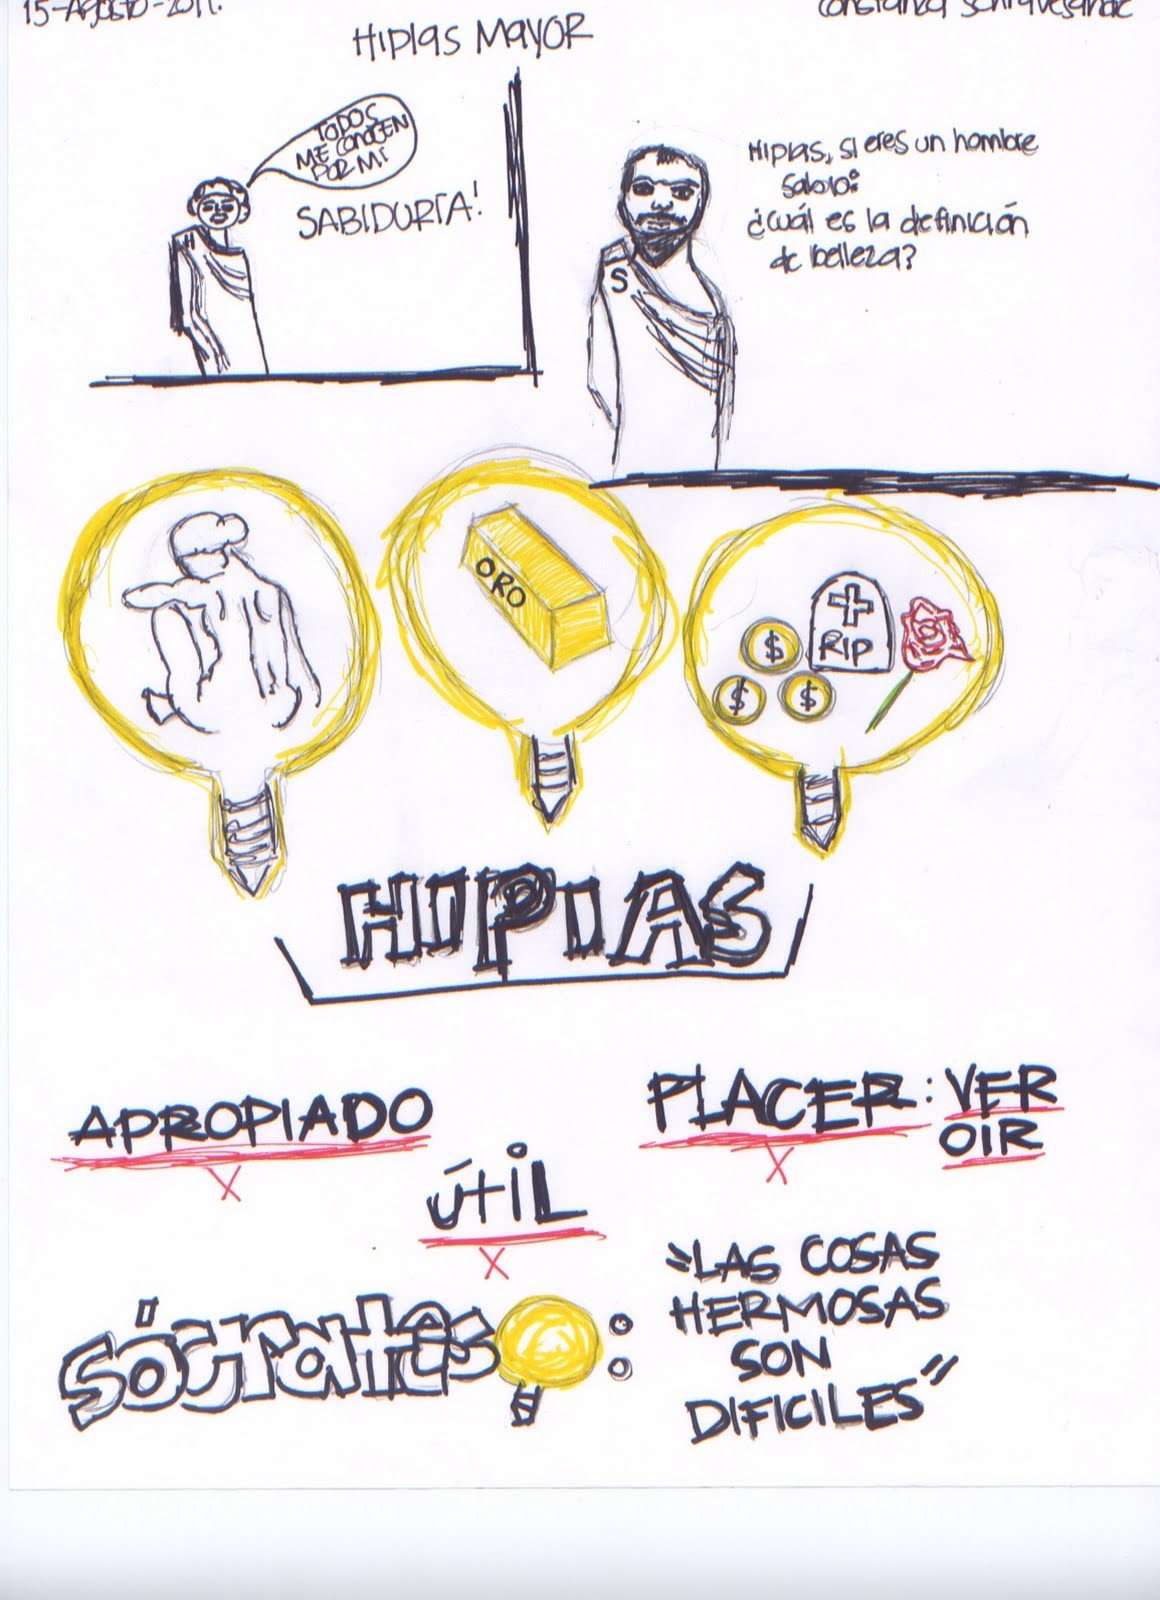 15-Agosto-2011.
Constanza
HIPIAS MAYOR
TODOS
ME CONOCEN
POR MI
SABIDURÍA!
H
HIPIAS, SI ERES UN HOMBRE
SABIO:
¿CUÁL ES LA DEFINICIÓN
DE BELLEZA?
S
ORO
RIP
$
$ $
HIPIAS
APROPIADO
X
PLACER: VER
OIR
X
ÚTIL
X
SÓCRATES :
"LAS COSAS
HERMOSAS
SON
DIFICILES"